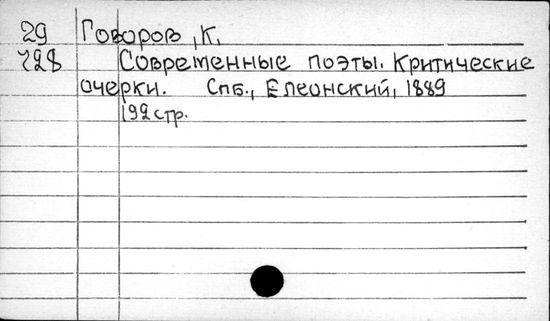 29 Говоров, К.
728 Современные поэты. Критические
очерки. Спб., Елеонский, 1889
192 стр.